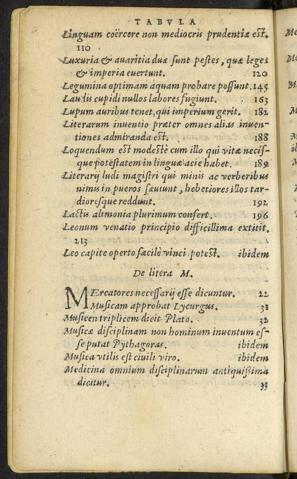 TABVLA
Linguam coërcere non mediocris prudentiæ est.
110
Luxuria & auaritia duæ sunt pestes, quæ leges
& imperia euertunt. 120
Legumina optimam aquam probare possunt. 145
Laudis cupidi nullos labores fugiunt. 163
Lupum auribus tenet, qui imperium gerit. 182
Literarum inuentio præter omnes alias inuen-
tiones admiranda est. 188
Loquendum est modestè cum illo qui vitæ necis-
que potestatem in linguæ acie habet. 189
Literarij ludi magistri qui minis ac verberibus
nimis in pueros sæuiunt, hebetiores illos tar-
dioresque reddunt. 192
Lactis alimonia plurimum confert. 196
Leonum venatio principio difficillima extitit.
213
Leo capite operto facilè vinci potest. ibidem
De litera M.
MErcatores necessarij esse dicuntur. 22
Musicam approbat Lycurgus. 31
Musicen triplicem dicit Plato. 32
Musicæ disciplinam non hominum inuentum es-
se putat Pythagoras. ibidem
Musica vtilis est ciuili viro. ibidem
Medicina omnium disciplinarum antiquißima
dicitur. 33